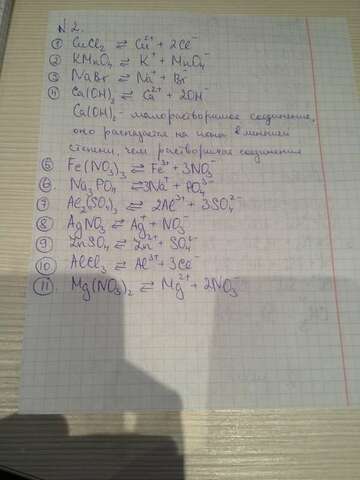 №2.
① CuCl₂ ⇌ Cu²⁺ + 2Cl⁻
② KMnO₄ ⇌ K⁺ + MnO₄⁻
③ NaBr ⇌ Na⁺ + Br⁻
④ Ca(OH)₂ ⇌ Ca²⁺ + 2OH⁻
Ca(OH)₂ - малорастворимое соединение,
оно распадается на ионы в меньшей
степени, чем растворимые соединения
⑤ Fe(NO₃)₃ ⇌ Fe³⁺ + 3NO₃⁻
⑥ Na₃PO₄ ⇌ 3Na⁺ + PO₄³⁻
⑦ Al₂(SO₄)₃ ⇌ 2Al³⁺ + 3SO₄²⁻
⑧ AgNO₃ ⇌ Ag⁺ + NO₃⁻
⑨ ZnSO₄ ⇌ Zn²⁺ + SO₄²⁻
⑩ AlCl₃ ⇌ Al³⁺ + 3Cl⁻
⑪ Mg(NO₃)₂ ⇌ Mg²⁺ + 2NO₃⁻